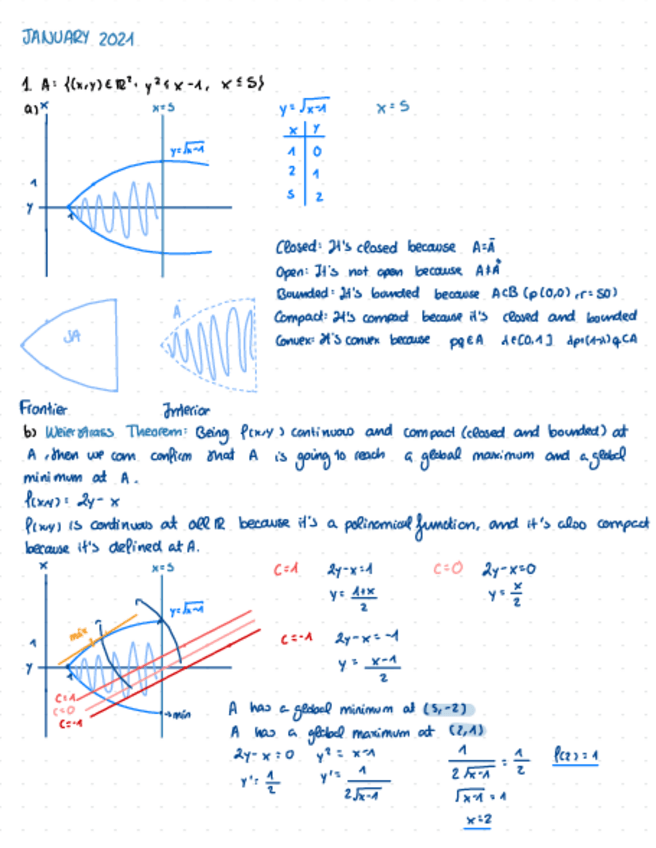 JANUARY 2021
1. A: {(x,y) ∈ ℝ²: y² ≤ x-1, x ≤ 5}
a) x
x=5
y=√x-1
1
y
1
y=√x-1
x=5
x y
1 0
2 1
5 2
Closed: It's closed because A=Ā
Open: It's not open because A≠Å
Bounded: It's bounded because A⊂B (p(0,0), r=50)
Compact: It's compact because it's closed and bounded
Convex: It's convex because pq∈A λ∈[0,1] λp+(1-λ)q⊂A
∂A
Å
Frontier
Interior
b) Weierstrass Theorem: Being f(x,y) continuous and compact (closed and bounded) at
A, then we can confirm that A is going to reach a global maximum and a global
minimum at A.
f(x,y): 2y-x
f(x,y) is continuous at all ℝ because it's a polinomical function, and it's also compact
because it's defined at A.
x
x=5
y=√x-1
máx
1
y
C=1
C=0
C=-1
→mín
C=1 2y-x=1
y= 1+x/2
C=0 2y-x=0
y= x/2
C=-1 2y-x=-1
y = x-1/2
A has a global minimum at (5,-2)
A has a global maximum at (2,1)
2y-x=0 y²=x-1
y'= 1/2 y'= 1/2√x-1
1/2√x-1 = 1/2 f(2)=1
√x-1=1
x=2